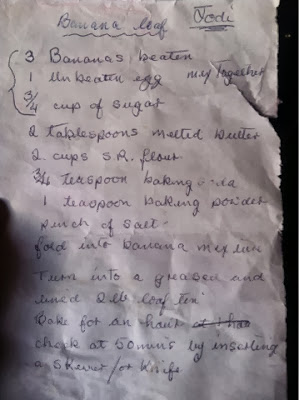 Banana loaf Jodi
3 Bananas beaten
1 unbeaten egg mix together
3/4 cup of sugar
2 tablespoons melted butter
2 cups S.R. flour
3/4 teaspoon baking
1 teaspoon baking powder
pinch of salt
fold into banana mixture
Turn into a greased and
lined 2 lb loaf tin
Bake for an hour
check at 50 mins by inserting
a skewer / or knife